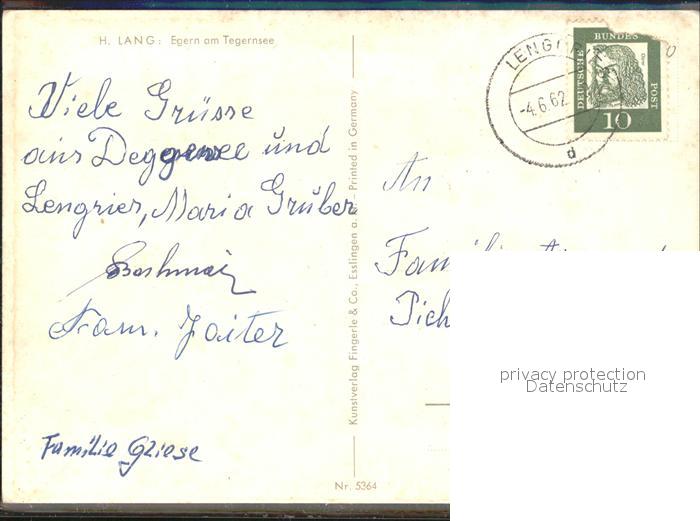 H. LANG: Egern am Tegernsee
Viele Grüsse
aus Deggernsee und
Lengrier, Maria Grüber
Fam. Zaiter
Familie Gliese
Kunstverlag Fingerle & Co., Esslingen a. N. - Printed in Germany
Nr. 5364
LENGGRIES
-4.6.62
d
DEUTSCHE BUNDES POST
Dürer
10
An
Familie
Pich
privacy protection
Datenschutz